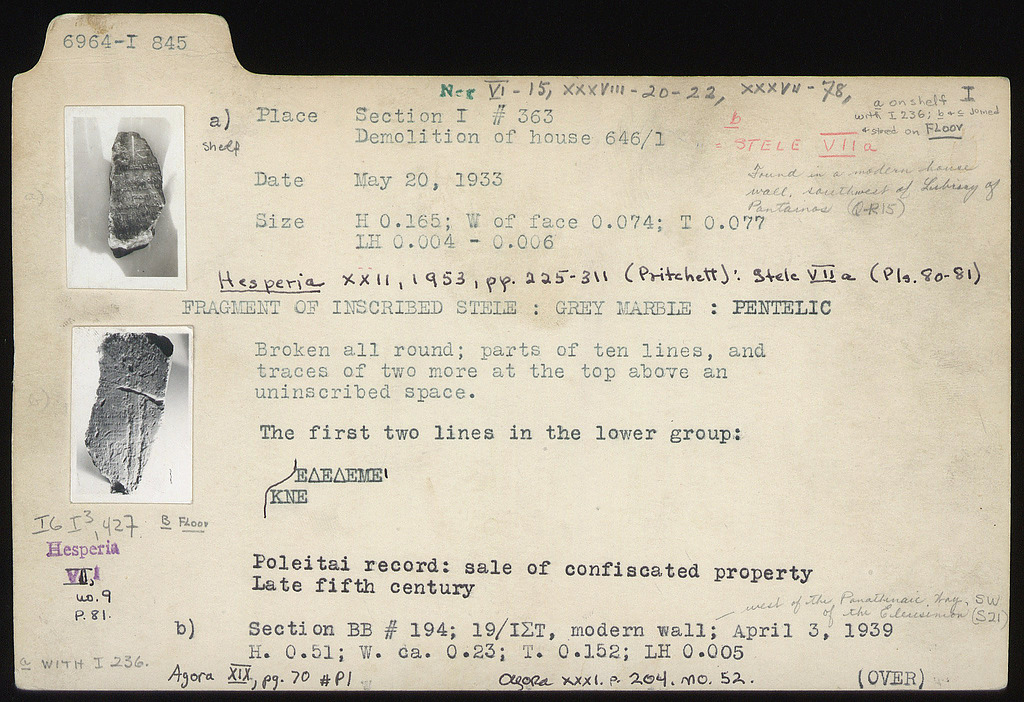 6964-I 845
Neg VI - 15, XXXVIII - 20 - 22, XXXVII - 78,
a on shelf I
with I 236; b + c joined
+ stored on FLOOR
a) Place Section I # 363
Shelf
Demolition of house 646/1
b
= STELE VII a
Date May 20, 1933
Found in a modern house
wall, southwest of Library of
Pantainos (Q-R15)
a)
Size H 0.165; W of face 0.074; T 0.077
LH 0.004 - 0.006
Hesperia XXII, 1953, pp. 225-311 (Pritchett): Stele VII a (Pls. 80-81)
FRAGMENT OF INSCRIBED STELE : GREY MARBLE : PENTELIC
Broken all round; parts of ten lines, and
traces of two more at the top above an
uninscribed space.
The first two lines in the lower group:
ΕΔΕΔΕΜΕ
ΚΝΕ
IG I³, 427. B FLOOR
Hesperia
VII, 1
no. 9
P. 81.
Poleitai record: sale of confiscated property
Late fifth century
west of the Panathenaic Way, SW
of the Eleusinion (S 21)
b) Section BB # 194; 19/ΙΣΤ, modern wall; April 3, 1939
H. 0.51; W. ca. 0.23; T. 0.152; LH 0.005
a WITH I 236.
Agora XIX, pg. 70 # P1
Agora XXXI. p. 204. no. 52.
(OVER)